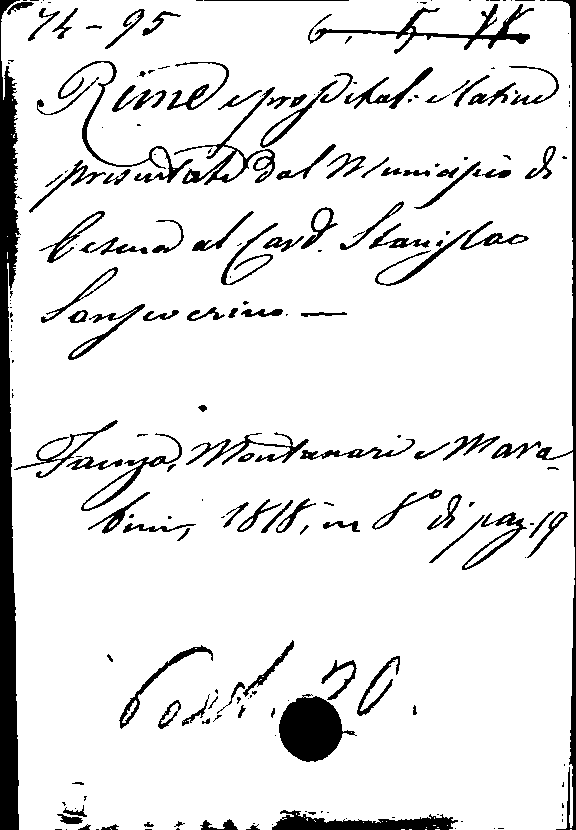 74-95 6. 5. 
Rime e prose ital: e latine
presentate dal Municipio di
Cesena al Card. Stanislao
Sanseverino. —
Faenza, Montanari e Mara-
bini, 1818, in 8° di pag. 19
20.